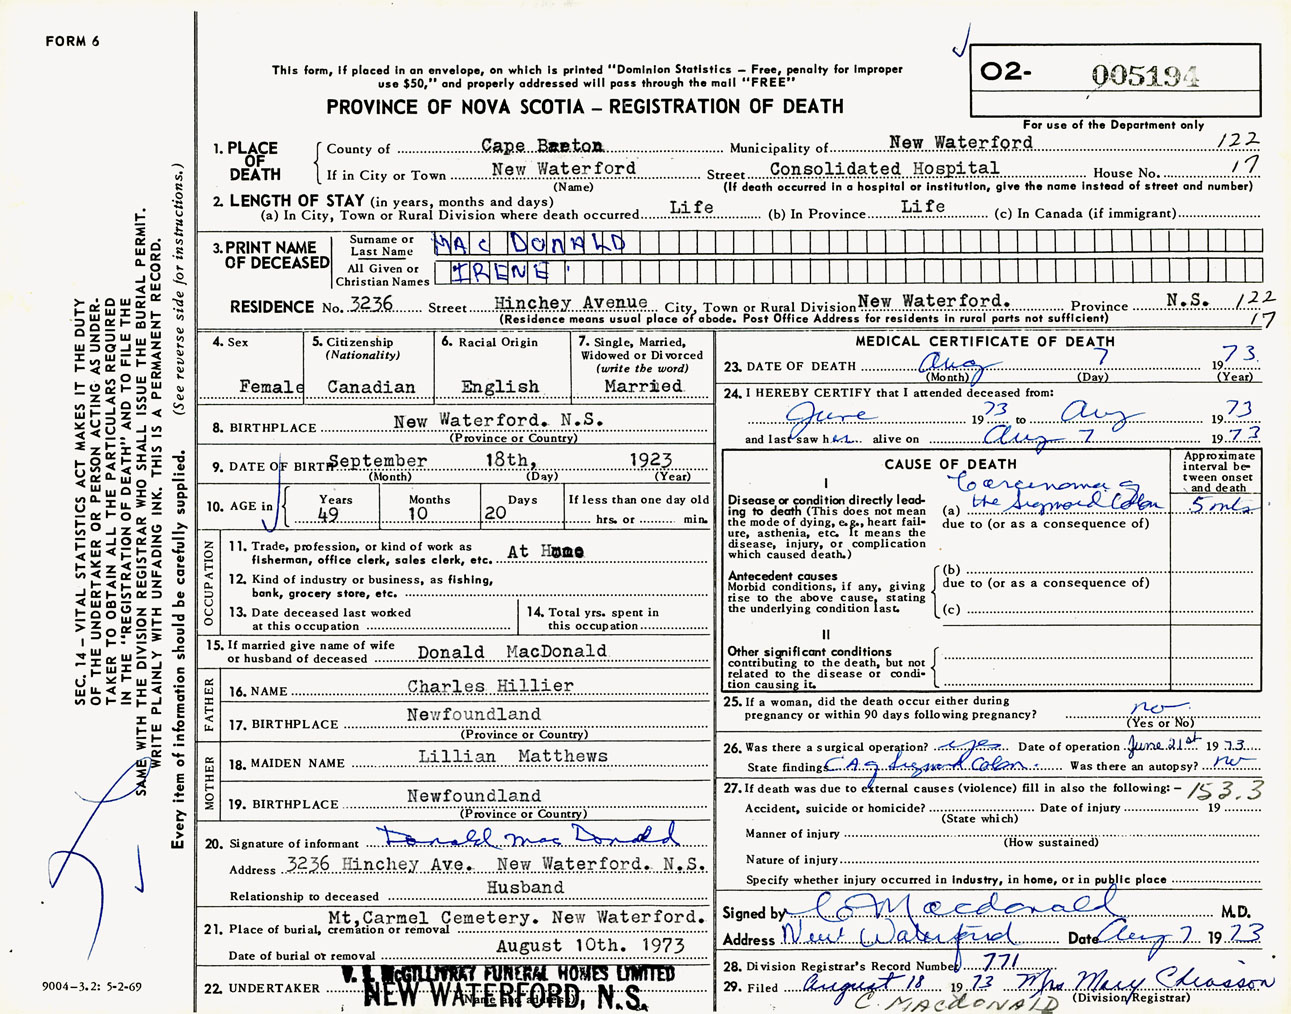 FORM 6
This form, if placed in an envelope, on which is printed "Dominion Statistics – Free, penalty for improper
use $50," and properly addressed will pass through the mail "FREE"
PROVINCE OF NOVA SCOTIA – REGISTRATION OF DEATH
O2- 005194
For use of the Department only
1. PLACE OF DEATH
County of Cape Breton Municipality of New Waterford 122
If in City or Town New Waterford Street Consolidated Hospital House No. 17
(Name) (If death occurred in a hospital or institution, give the name instead of street and number)
2. LENGTH OF STAY (in years, months and days)
(a) In City, Town or Rural Division where death occurred Life (b) In Province Life (c) In Canada (if immigrant)
3. PRINT NAME OF DECEASED
Surname or Last Name MAC DONALD
All Given or Christian Names IRENE
RESIDENCE No. 3236 Street Hinchey Avenue City, Town or Rural Division New Waterford. Province N.S. 122
(Residence means usual place of abode. Post Office Address for residents in rural parts not sufficient) 17
4. Sex
Female
5. Citizenship
(Nationality)
Canadian
6. Racial Origin
English
7. Single, Married,
Widowed or Divorced
(write the word)
Married
8. BIRTHPLACE New Waterford. N.S.
(Province or Country)
9. DATE OF BIRTH September 18th, 1923
(Month) (Day) (Year)
10. AGE in
Years Months Days If less than one day old
49 10 20 hrs. or min.
OCCUPATION
11. Trade, profession, or kind of work as
fisherman, office clerk, sales clerk, etc. At Home
12. Kind of industry or business, as fishing,
bank, grocery store, etc.
13. Date deceased last worked
at this occupation
14. Total yrs. spent in
this occupation
15. If married give name of wife
or husband of deceased Donald MacDonald
FATHER
16. NAME Charles Hillier
17. BIRTHPLACE Newfoundland
(Province or Country)
MOTHER
18. MAIDEN NAME Lillian Matthews
19. BIRTHPLACE Newfoundland
(Province or Country)
20. Signature of informant Donald Mac Donald
Address 3236 Hinchey Ave. New Waterford. N.S.
Relationship to deceased Husband
21. Place of burial, cremation or removal Mt, Carmel Cemetery. New Waterford.
Date of burial or removal August 10th. 1973
22. UNDERTAKER V. J. McGILLIVRAY FUNERAL HOMES LIMITED
(Name and address)
NEW WATERFORD, N.S.
MEDICAL CERTIFICATE OF DEATH
23. DATE OF DEATH Aug 7 1973
(Month) (Day) (Year)
24. I HEREBY CERTIFY that I attended deceased from:
June 1973 to Aug 1973
and last saw her alive on Aug 7 1973
CAUSE OF DEATH
Approximate
interval be-
tween onset
and death
I
Disease or condition directly lead-
ing to death (This does not mean
the mode of dying, e.g., heart fail-
ure, asthenia, etc. It means the
disease, injury, or complication
which caused death.)
Carcinoma of
(a) the Sigmoid Colon 5 mths
due to (or as a consequence of)
Antecedent causes
Morbid conditions, if any, giving
rise to the above cause, stating
the underlying condition last.
(b)
due to (or as a consequence of)
(c)
II
Other significant conditions
contributing to the death, but not
related to the disease or condi-
tion causing it.
25. If a woman, did the death occur either during
pregnancy or within 90 days following pregnancy? no
(Yes or No)
26. Was there a surgical operation? yes Date of operation June 21st 1973
State findings CA of Sigmoid Colon. Was there an autopsy? no
27. If death was due to external causes (violence) fill in also the following: – 153.3
Accident, suicide or homicide? Date of injury 19
(State which)
Manner of injury
(How sustained)
Nature of injury
Specify whether injury occurred in industry, in home, or in public place
Signed by C Macdonald M.D.
Address New Waterford Date Aug 7 1973
28. Division Registrar's Record Number 771
29. Filed August 18 1973 Mrs Mary Chiasson
(Division Registrar)
C. MACDONALD
SEC. 14 – VITAL STATISTICS ACT MAKES IT THE DUTY
OF THE UNDERTAKER OR PERSON ACTING AS UNDER-
TAKER TO OBTAIN ALL THE PARTICULARS REQUIRED
IN THE "REGISTRATION OF DEATH" AND TO FILE THE
SAME WITH THE DIVISION REGISTRAR WHO SHALL ISSUE THE BURIAL PERMIT.
WRITE PLAINLY WITH UNFADING INK. THIS IS A PERMANENT RECORD.
Every item of information should be carefully supplied. (See reverse side for instructions.)
9004-3.2: 5-2-69